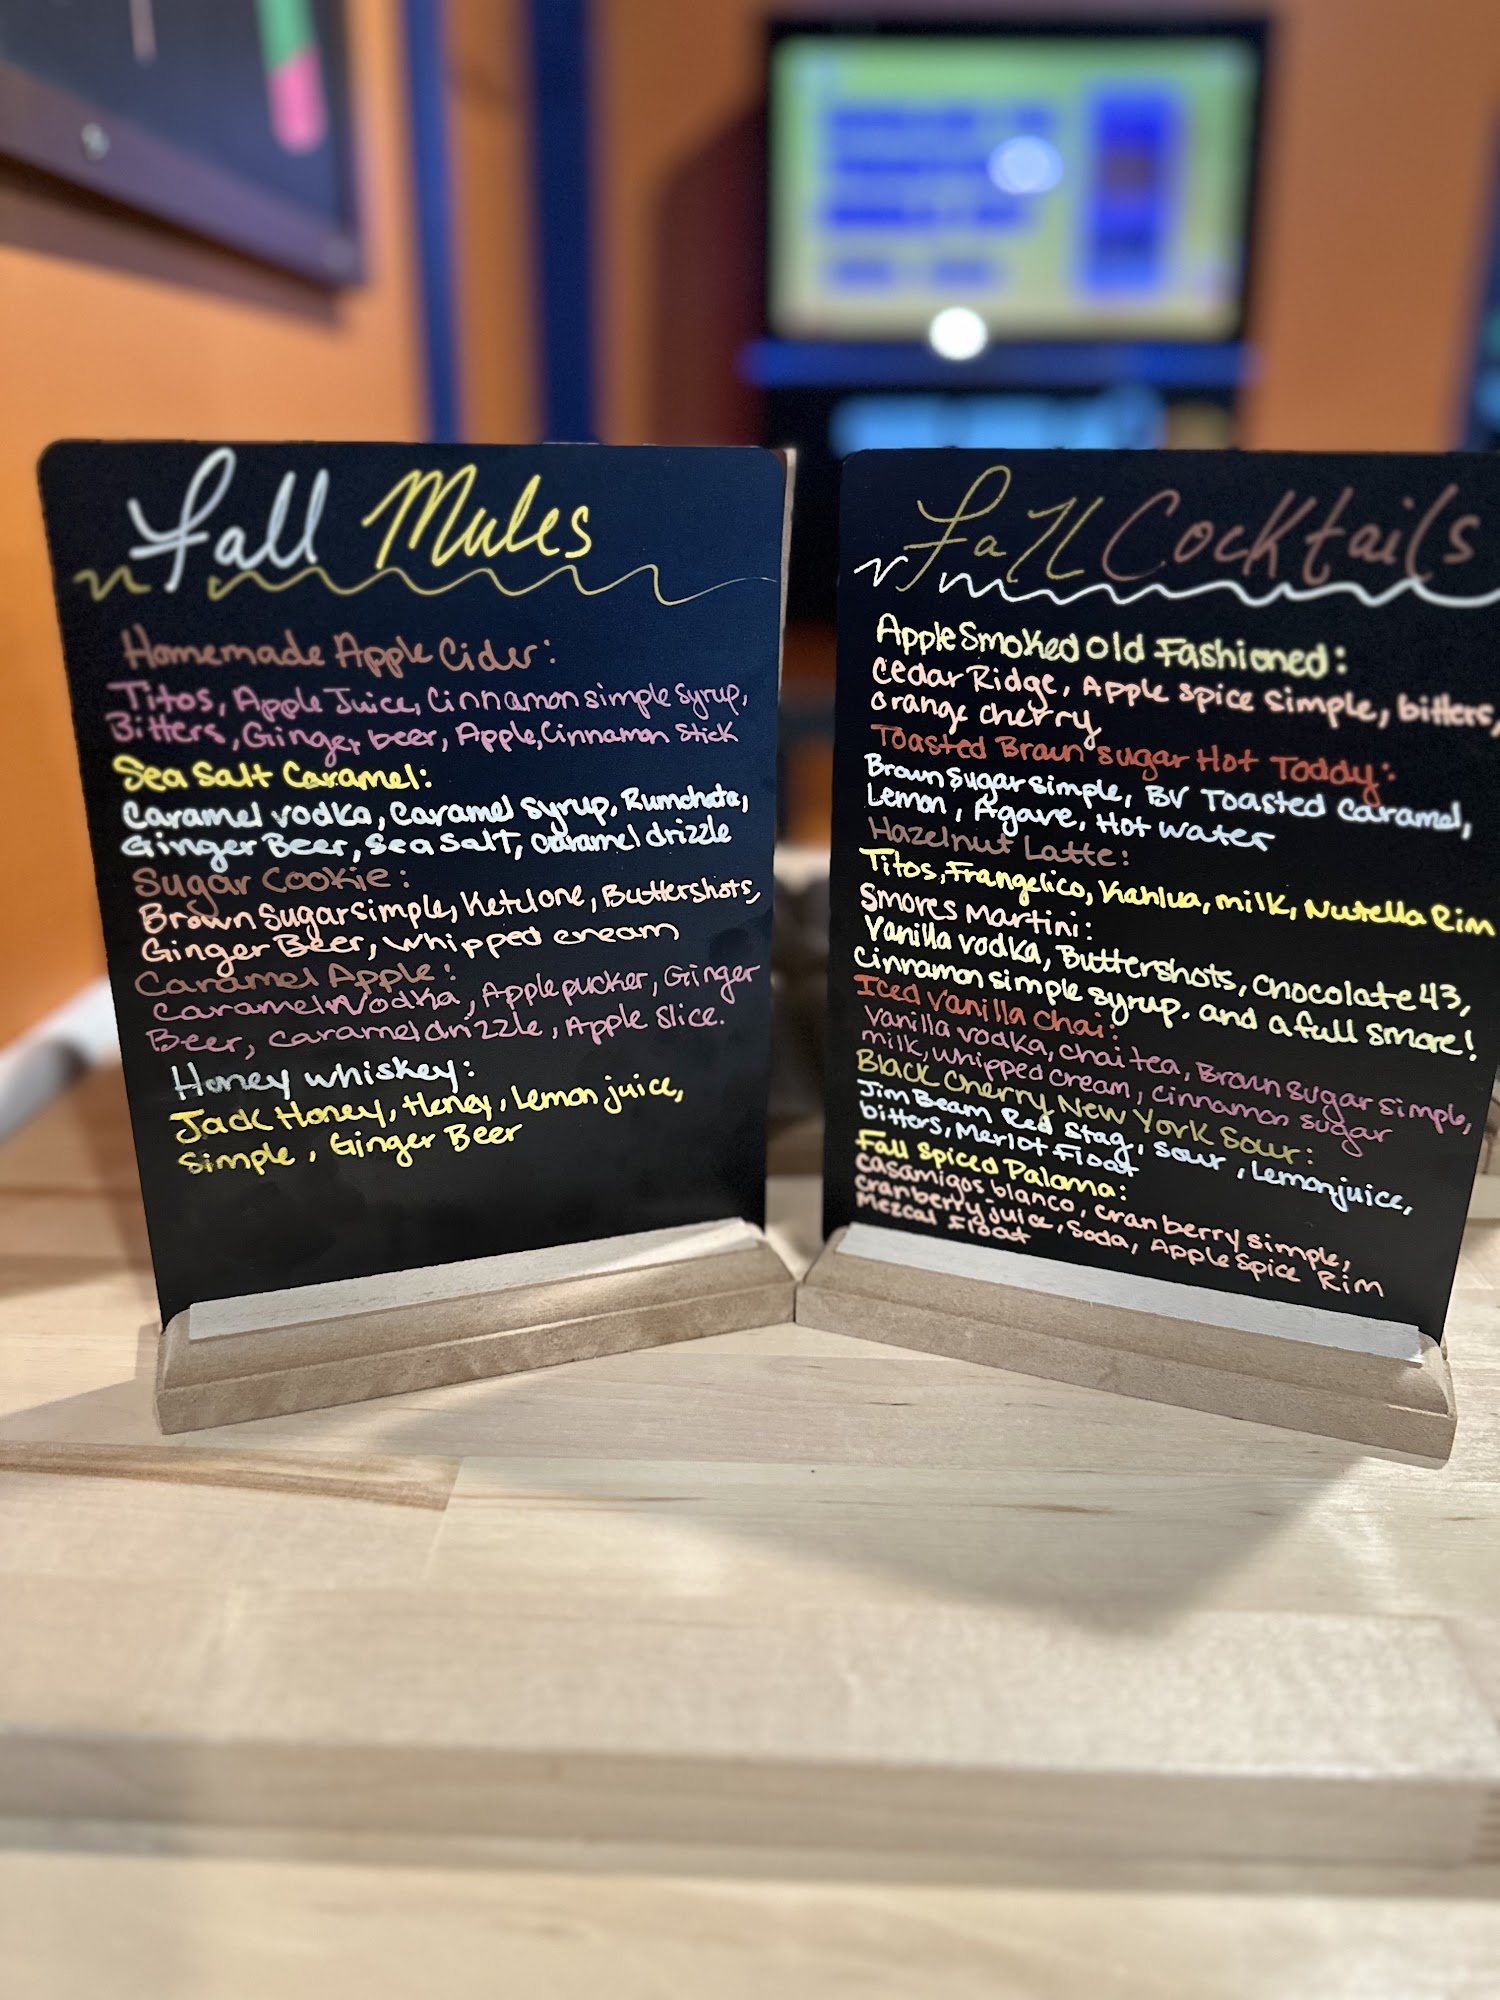 Fall Mules
Homemade Apple Cider:
Titos, Apple Juice, Cinnamon simple syrup,
Bitters, Ginger beer, Apple, Cinnamon Stick
Sea Salt Caramel:
Caramel vodka, Caramel syrup, Rumchata,
Ginger Beer, Sea Salt, Caramel drizzle
Sugar Cookie:
Brown Sugar simple, Ketel one, Buttershots,
Ginger Beer, whipped cream
Caramel Apple:
Caramel Vodka, Apple pucker, Ginger
Beer, Caramel drizzle, Apple Slice.
Honey whiskey:
Jack Honey, Honey, Lemon juice,
Simple, Ginger Beer
Fall Cocktails
Apple Smoked Old Fashioned:
Cedar Ridge, Apple spice simple, bitters,
orange cherry
Toasted Brown sugar Hot Toddy:
Brown sugar simple, BV Toasted Caramel,
Lemon, Agave, Hot water
Hazelnut Latte:
Titos, Frangelico, Kahlua, milk, Nutella Rim
Smores Martini:
Vanilla vodka, Buttershots, Chocolate 43,
Cinnamon simple syrup. and a full smore!
Iced Vanilla Chai:
Vanilla vodka, chai tea, Brown sugar simple,
milk, whipped cream, cinnamon sugar
Black Cherry New York Sour:
Jim Beam Red Stag, sour, Lemon juice,
bitters, Merlot Float
Fall Spiced Paloma:
Casamigos blanco, cranberry simple,
cranberry juice, Soda, Apple Spice Rim
Mezcal Float